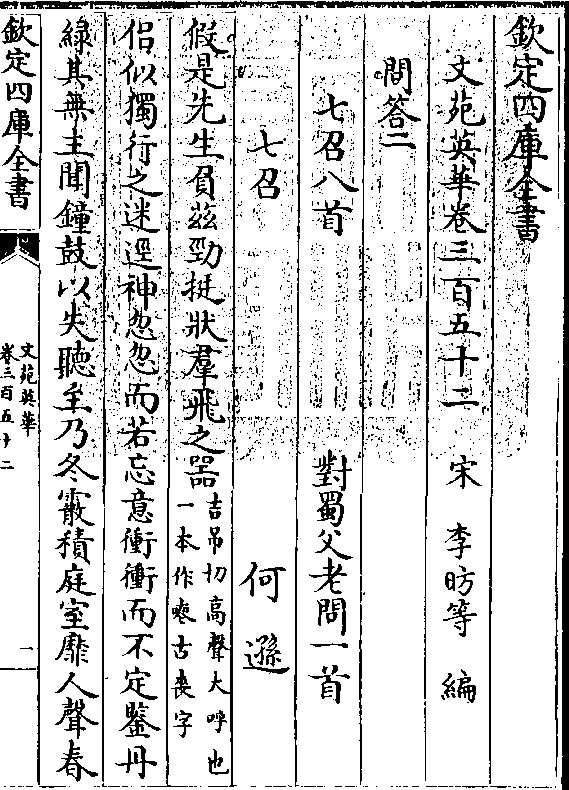 欽定四庫全書
文苑英華卷三百五十二　宋　李昉等　編
問答二
七召八首　對蜀父老問一首
七召　何遜
假是先生負茲勁挺狀羣飛之㗊吉吊切高聲大呼也一本作㗊古喪字
侣似獨行之迷逕神忽忽而若忘意衝衝而不定鑒丹
綠其無主聞鐘鼓以失聽至乃冬霰積庭室靡人聲春
欽定四庫全書
文苑英華
卷三百五十二
一